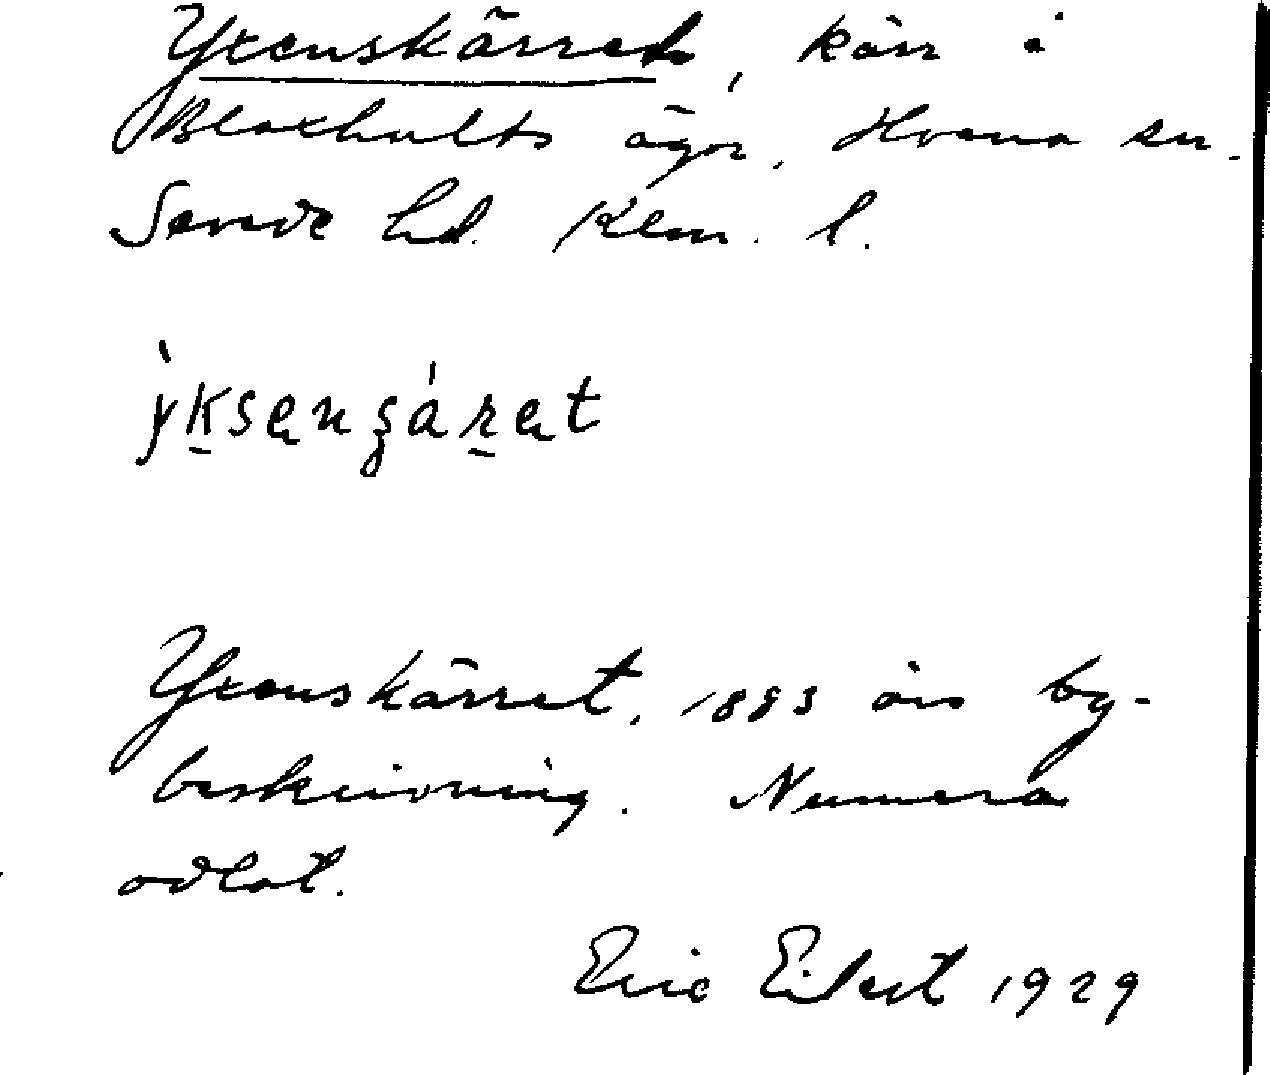 Yxenskärret, kärr i
Bloxhults ägor, Hvena sn.
Sevede hd. Klm. l.
ỳksenʂáret
Yxenskärret, 1883 års by-
beskrivning. Numera
odlat.
Eric Eilert 1929